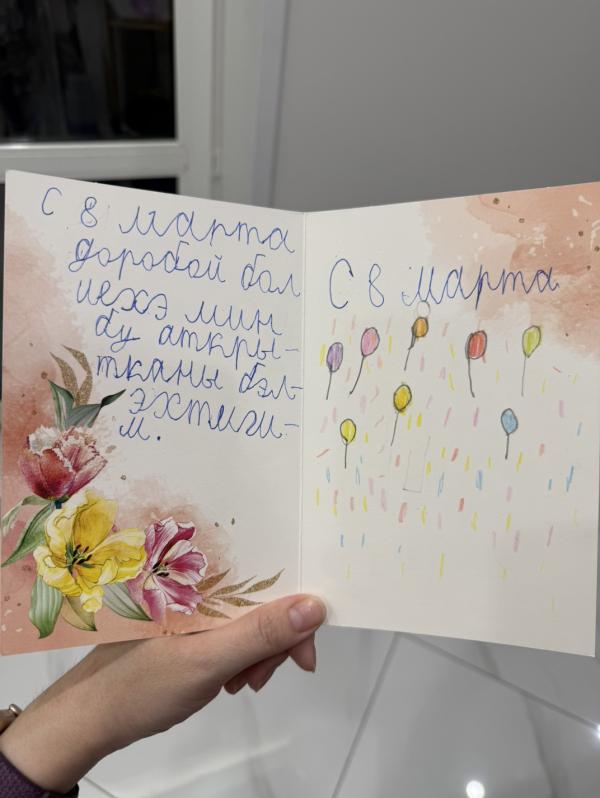 С 8 марта
доробой бол
иехэ мин
бу аткры-
тканы бэл-
эхтиги-
м.
С 8 марта